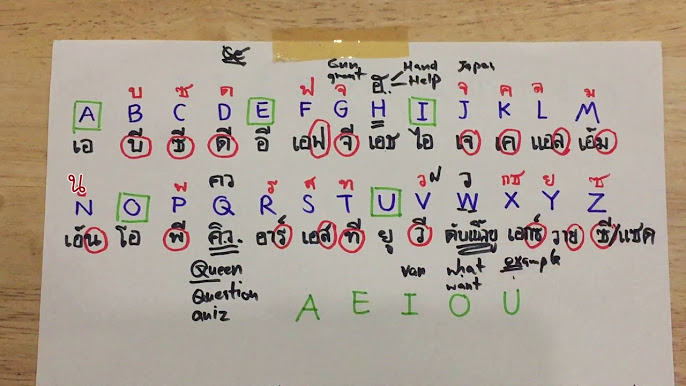 Gun Hand Japan
great Help
บ ซ ด ฟ จ ฮ. จ ค ล ม
A B C D E F G H I J K L M
เอ บี ซี ดี อี เอฟ จี เอช ไอ เจ เค แอล เอ็ม
น พ คว ร ส ท ว ฟ ว กซ ย ซ
N O P Q R S T U V W X Y Z
เอ็น โอ พี คิว. อาร์ เอส ที ยู วี ดับเบิ้ลยู เอกซ์ วาย ซี/แซด
Queen van what example
Question want
quiz
A E I O U